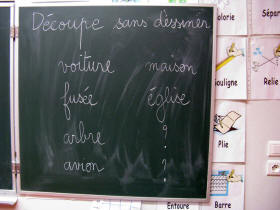 Découpe sans dessiner
voiture maison
fusée église
arbre ?
avion ?
Colorie
Sépar
Souligne
Relie
Plie
Entoure
Barre